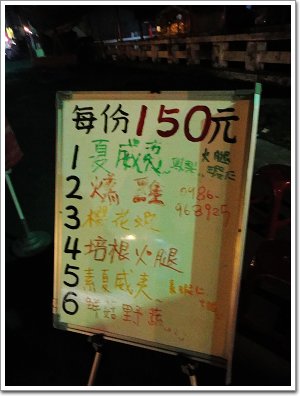 每份150元
1 夏威夷 鳳梨 火腿
2 燻雞 0986-
963925
3 櫻花蝦
4 培根火腿
5 素夏威夷
6 鮮菇野蔬